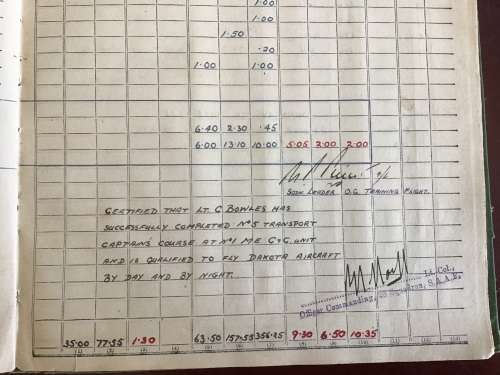 1.00
1.00
1.50
.20
1.00 1.00
6.40 2.30 .45
6.00 13.10 10.00 5.05 2.00 2.00
SQDN LEADER O.C. TRAINING FLIGHT.
CERTIFIED THAT LT. C BOWLES HAS
SUCCESSFULLY COMPLETED Nº5 TRANSPORT
CAPTAINS COURSE AT Nº1 M.E C&C. UNIT
AND IS QUALIFIED TO FLY DAKOTA AIRCRAFT
BY DAY AND BY NIGHT.
Lt. Col.,
Officer Commanding, Squadron, S.A.A.F.
35.00 77.55 1.30 63.50 157.55 356.25 9.30 6.50 10.35